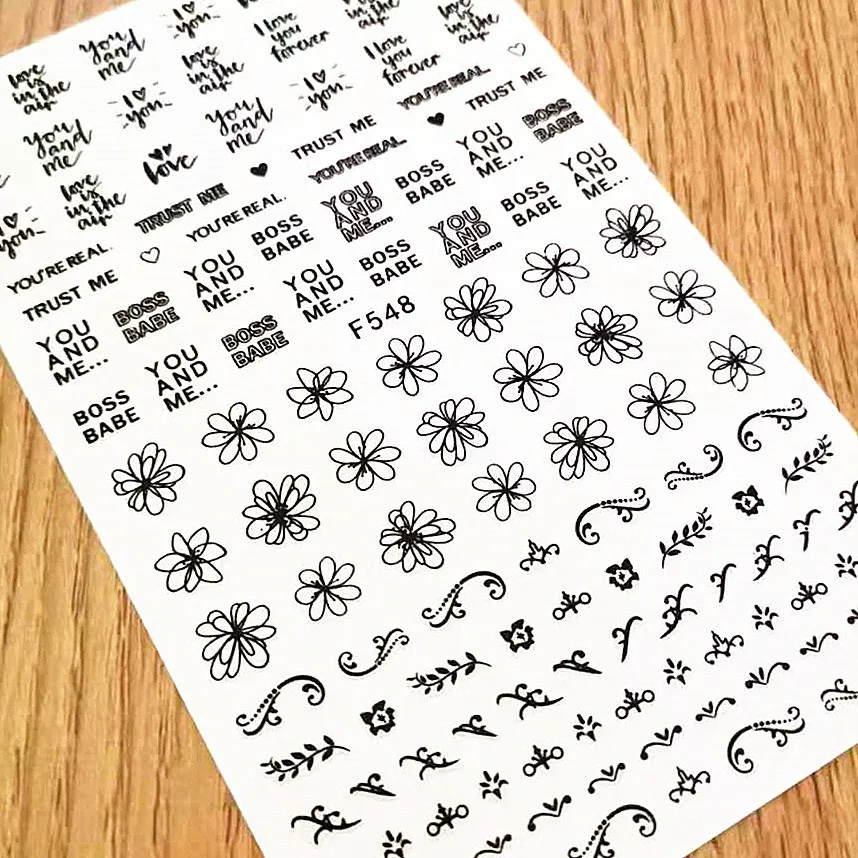 love
is
in the
air
You
and
me
I ♥
you
You
and
me
I ♥
you
love
is
in the
air
I love
you
forever
is
in the
air
♥
you
love
is
in the
air
love
You
and
me
I ♥
you
I love
you
forever
love
is
in the
air
YOU'RE REAL.
TRUST ME
TRUST ME
YOU'RE REAL.
TRUST ME
YOU'RE REAL.
YOU'RE REAL.
TRUST ME
YOU
AND
ME...
BOSS
BABE
YOU
AND
ME...
BOSS
BABE
YOU
AND
ME...
BOSS
BABE
YOU
AND
ME...
BOSS
BABE
BOSS
BABE
YOU
AND
ME...
BOSS
BABE
YOU
AND
ME...
BOSS
BABE
YOU
AND
ME...
BOSS
BABE
YOU
AND
ME...
F548